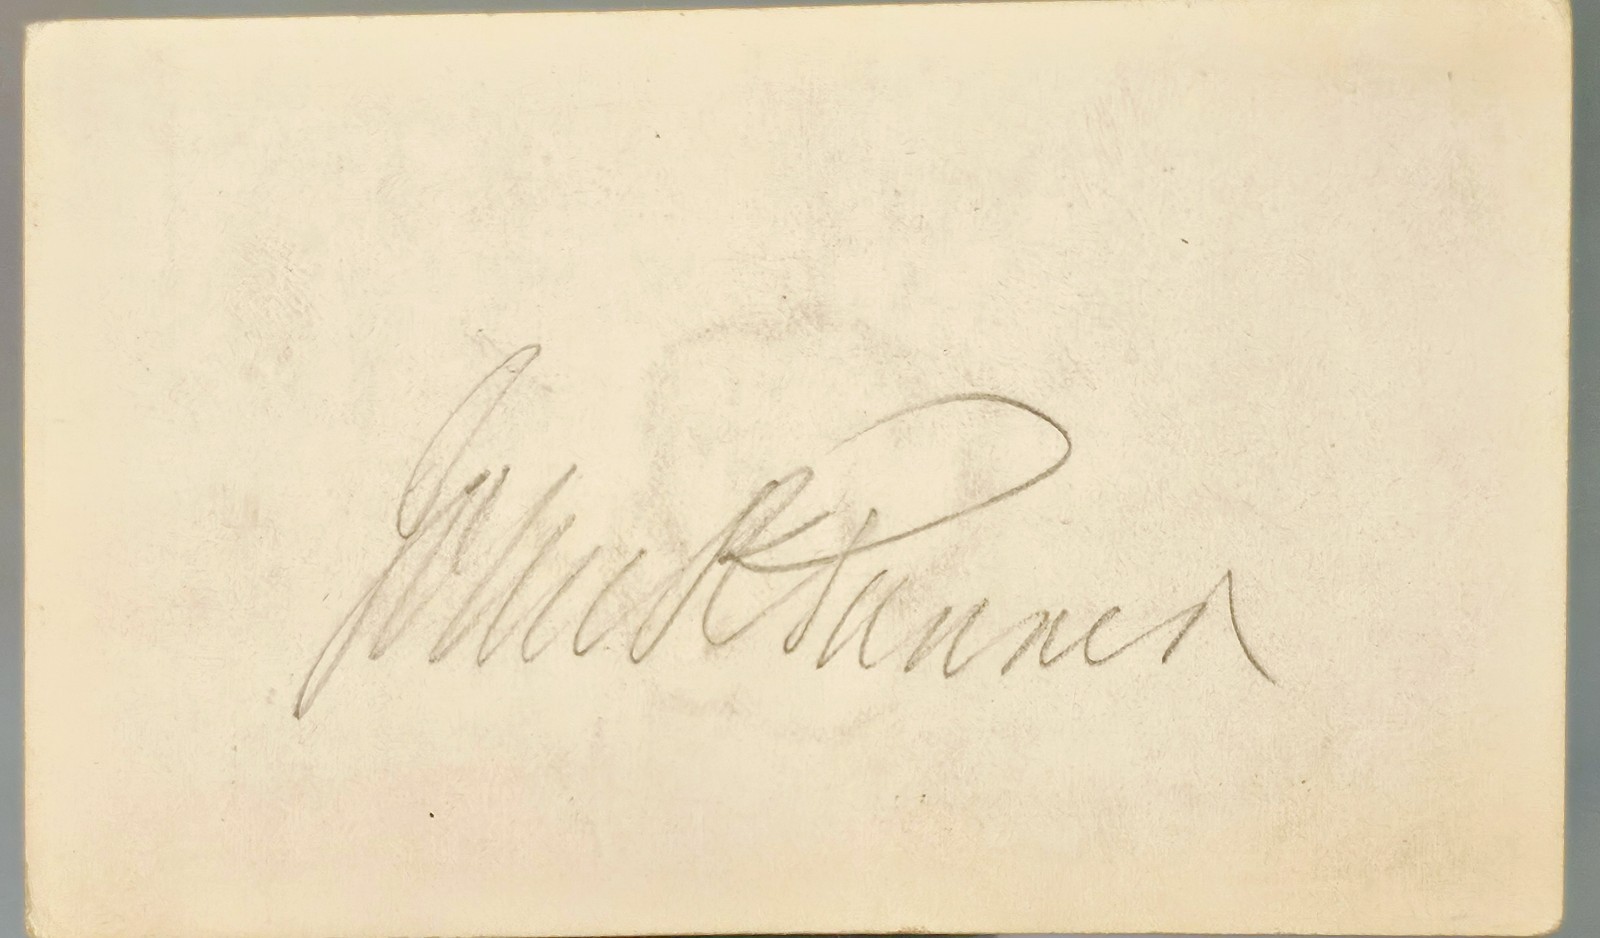 John R Tanner